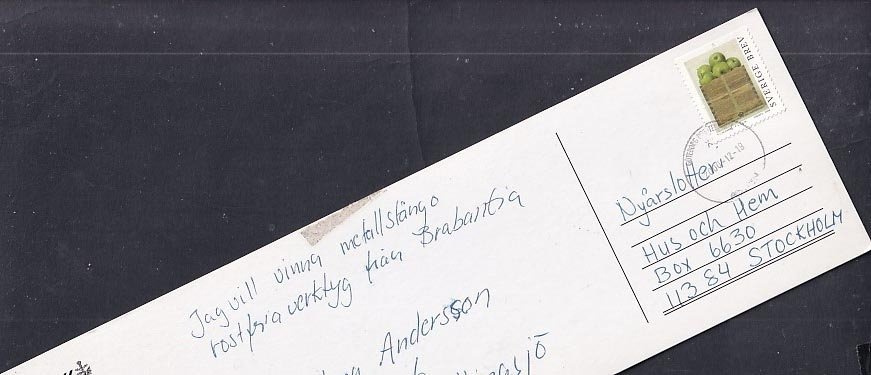 SVERIGE BREV
Jag vill vinna metallstång o
rostfria verktyg från Brabantia
Andersson
Nyårslotteri
Hus och Hem
Box 6630
113 84 STOCKHOLM